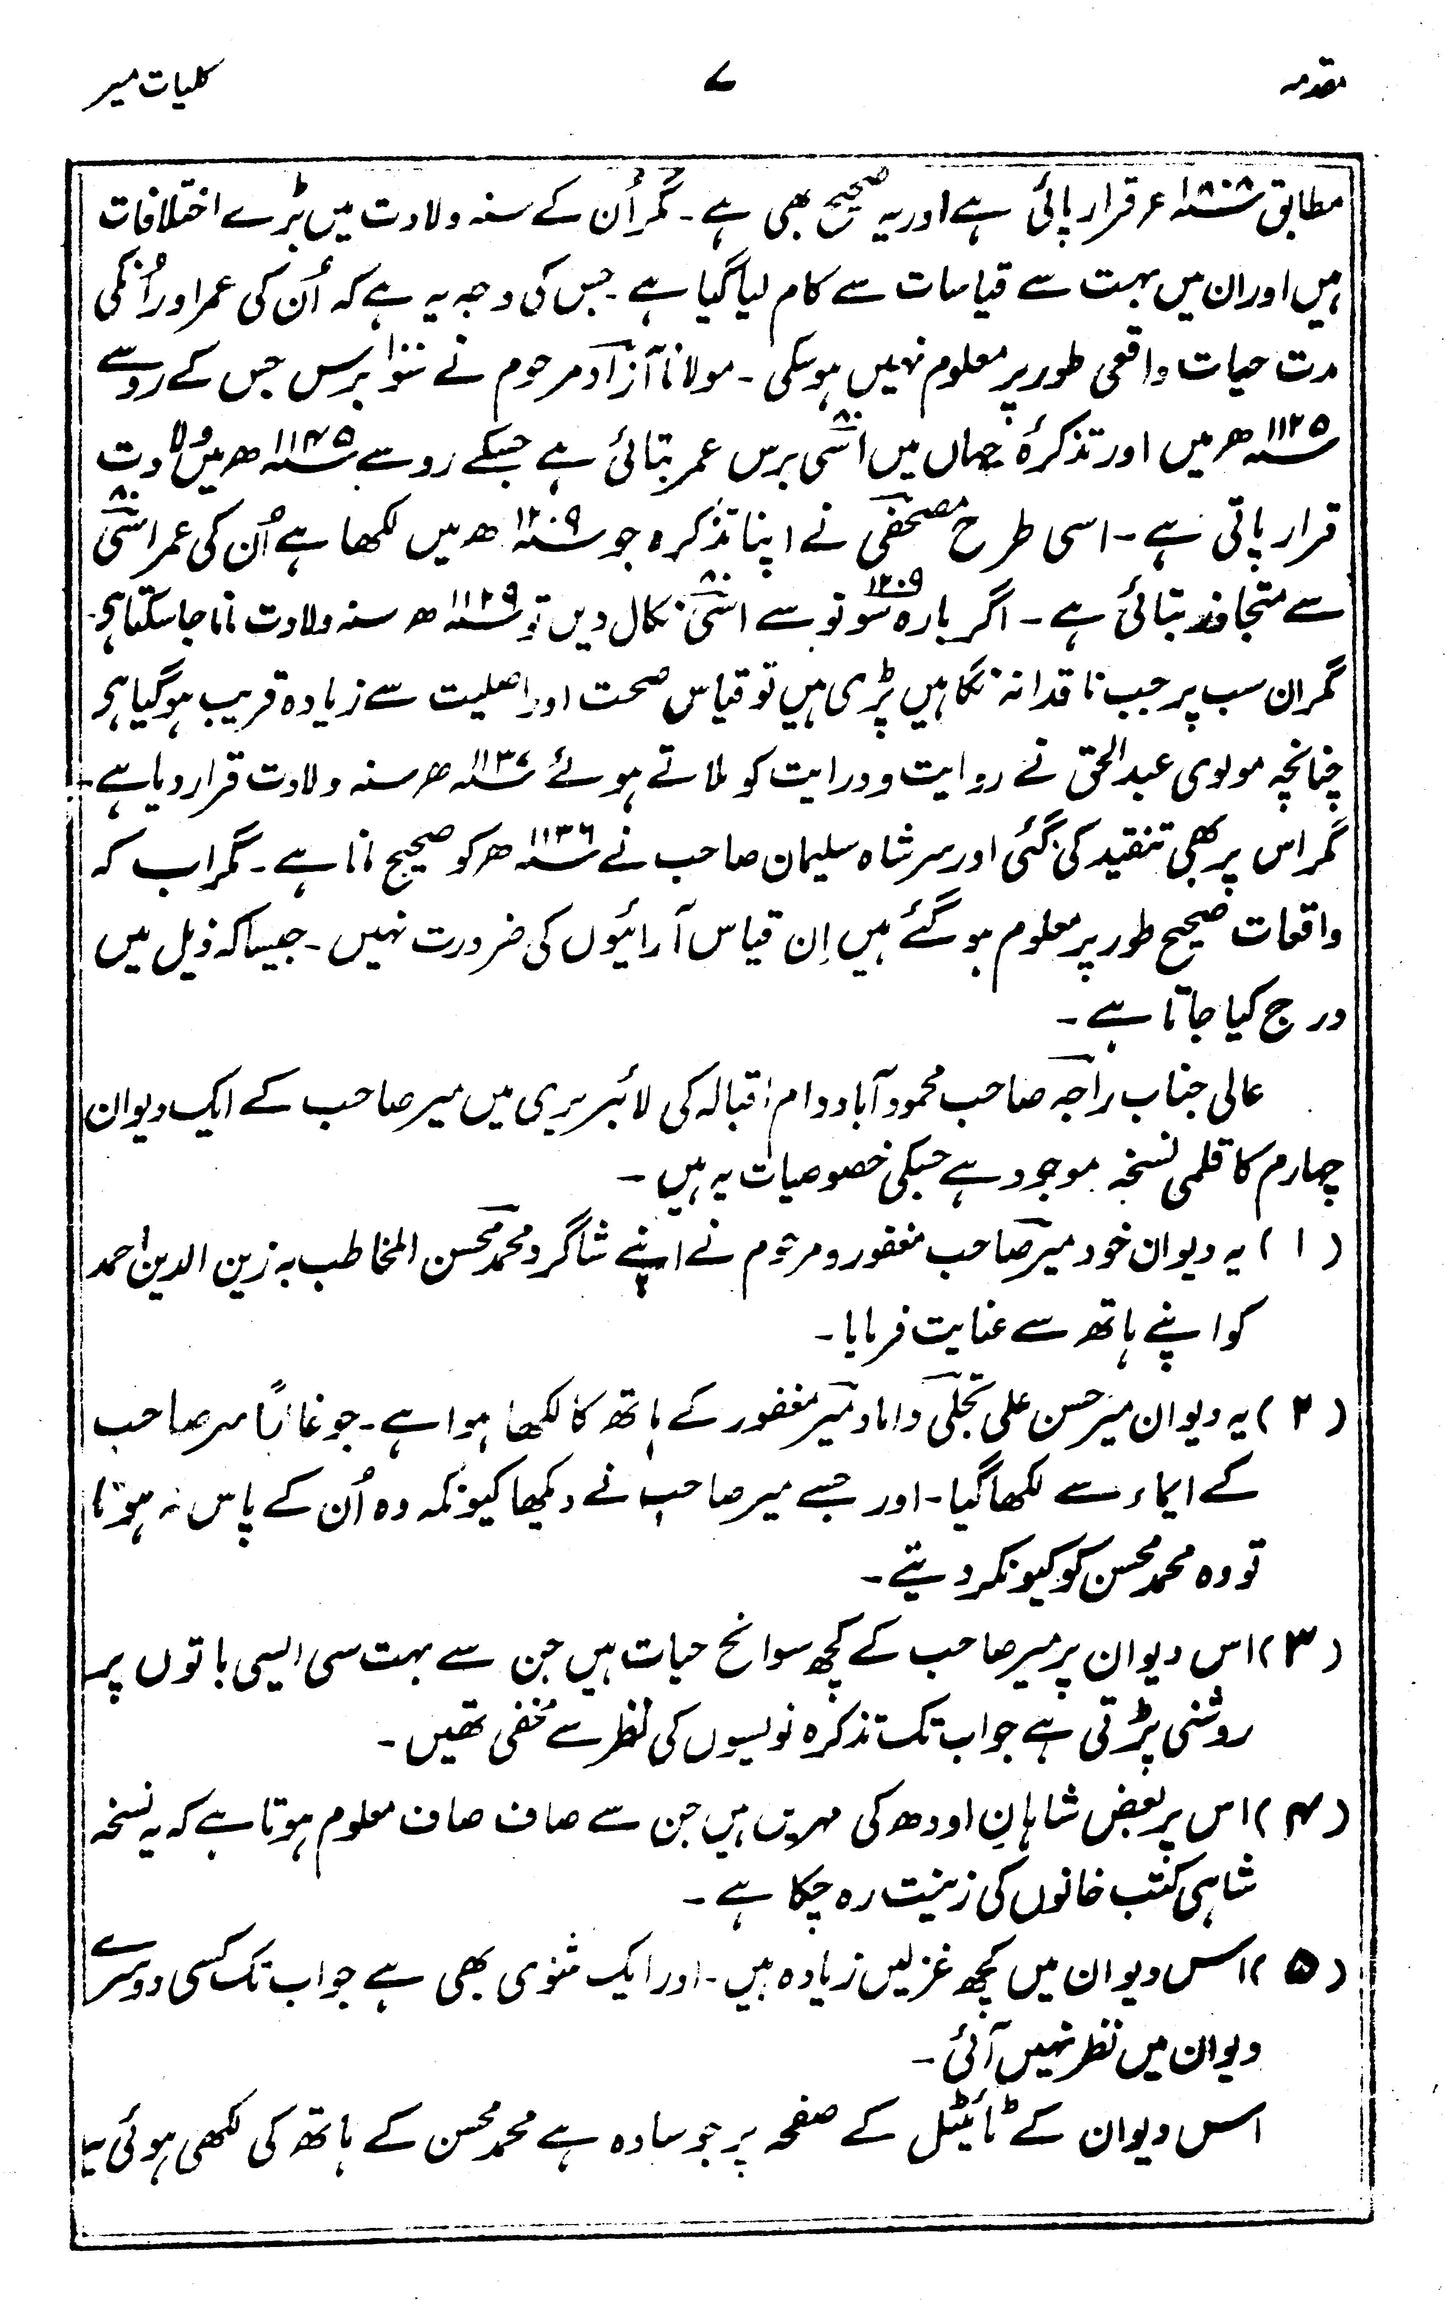 مقدمہ
۷
کلیات میر
مطابق ۱۸۰۸ء قرار پائی ہے اور یہ صحیح بھی ہے۔ مگر اُن کے سنہ ولادت میں بڑے اختلافات
ہیں اور ان میں بہت سے قیاسات سے کام لیا گیا ہے۔ جس کی وجہ یہ ہے کہ اُن کی عمر اور اُنکی
مدت حیات واقعی طور پر معلوم نہیں ہو سکی۔ مولانا آزاد مرحوم نے ننوا برس جس کے رو سے
۱۱۲۵ھ میں اور تذکرۂ جہاں میں اسّی ۸۰ برس عمر بتائی ہے جسکے رو سے ۱۱۴۵ھ میں ولادت
قرار پاتی ہے۔ اسی طرح مصحفی نے اپنا تذکرہ جو ۱۲۰۹ھ میں لکھا ہے اُن کی عمر اسّی ۸۰
سے متجاوز بتائی ہے۔ اگر بارہ سو نو ۱۲۰۹ سے اسّی ۸۰ نکال دیں تو ۱۱۲۹ھ سنہ ولادت مانا جا سکتا ہی۔
مگر ان سب پر جب ناقدانہ نگاہیں پڑی ہیں تو قیاس صحت اور اصلیت سے زیادہ قریب ہو گیا ہی
چنانچہ مولوی عبدالحق نے روایت و درایت کو ملاتے ہوئے ۱۱۳۷ھ سنہ ولادت قرار دیا ہے۔
مگر اس پر بھی تنقید کی گئی اور سر شاہ سلیمان صاحب نے ۱۱۳۶ھ کو صحیح مانا ہے۔ مگر اب کہ
واقعات صحیح طور پر معلوم ہو گئے ہیں اِن قیاس آرائیوں کی ضرورت نہیں۔ جیسا کہ ذیل میں
درج کیا جاتا ہے۔
عالی جناب راجہ صاحب محمود آباد دام اقبالہ کی لائبریری میں میر صاحب کے ایک دیوان
چہارم کا قلمی نسخہ موجود ہے جسکی خصوصیات یہ ہیں۔
(۱) یہ دیوان خود میر صاحب مغفور و مرحوم نے اپنے شاگرد محمد محسن المخاطب بہ زین الدین احمد
کو اپنے ہاتھ سے عنایت فرمایا۔
(۲) یہ دیوان میر حسن علی تجلّی داماد میر مغفور کے ہاتھ کا لکھا ہوا ہے۔ جو غالباً میر صاحب
کے ایماء سے لکھا گیا۔ اور جسے میر صاحب نے دیکھا کیونکہ وہ اُن کے پاس نہ ہوتا
تو وہ محمد محسن کو کیونکر دیتے۔
(۳) اس دیوان پر میر صاحب کے کچھ سوانح حیات ہیں جن سے بہت سی ایسی باتوں پر
روشنی پڑتی ہے جو اب تک تذکرہ نویسوں کی نظر سے مخفی تھیں۔
(۴) اس پر بعض شاہانِ اودھ کی مہریں ہیں جن سے صاف صاف معلوم ہوتا ہے کہ یہ نسخہ
شاہی کتب خانوں کی زینت رہ چکا ہے۔
(۵) اس دیوان میں کچھ غزلیں زیادہ ہیں۔ اور ایک مثنوی بھی ہے جو اب تک کسی دوسرے
دیوان میں نظر نہیں آئی۔
اس دیوان کے ٹائیٹل کے صفحہ پر جو سادہ ہے محمد محسن کے ہاتھ کی لکھی ہوئی